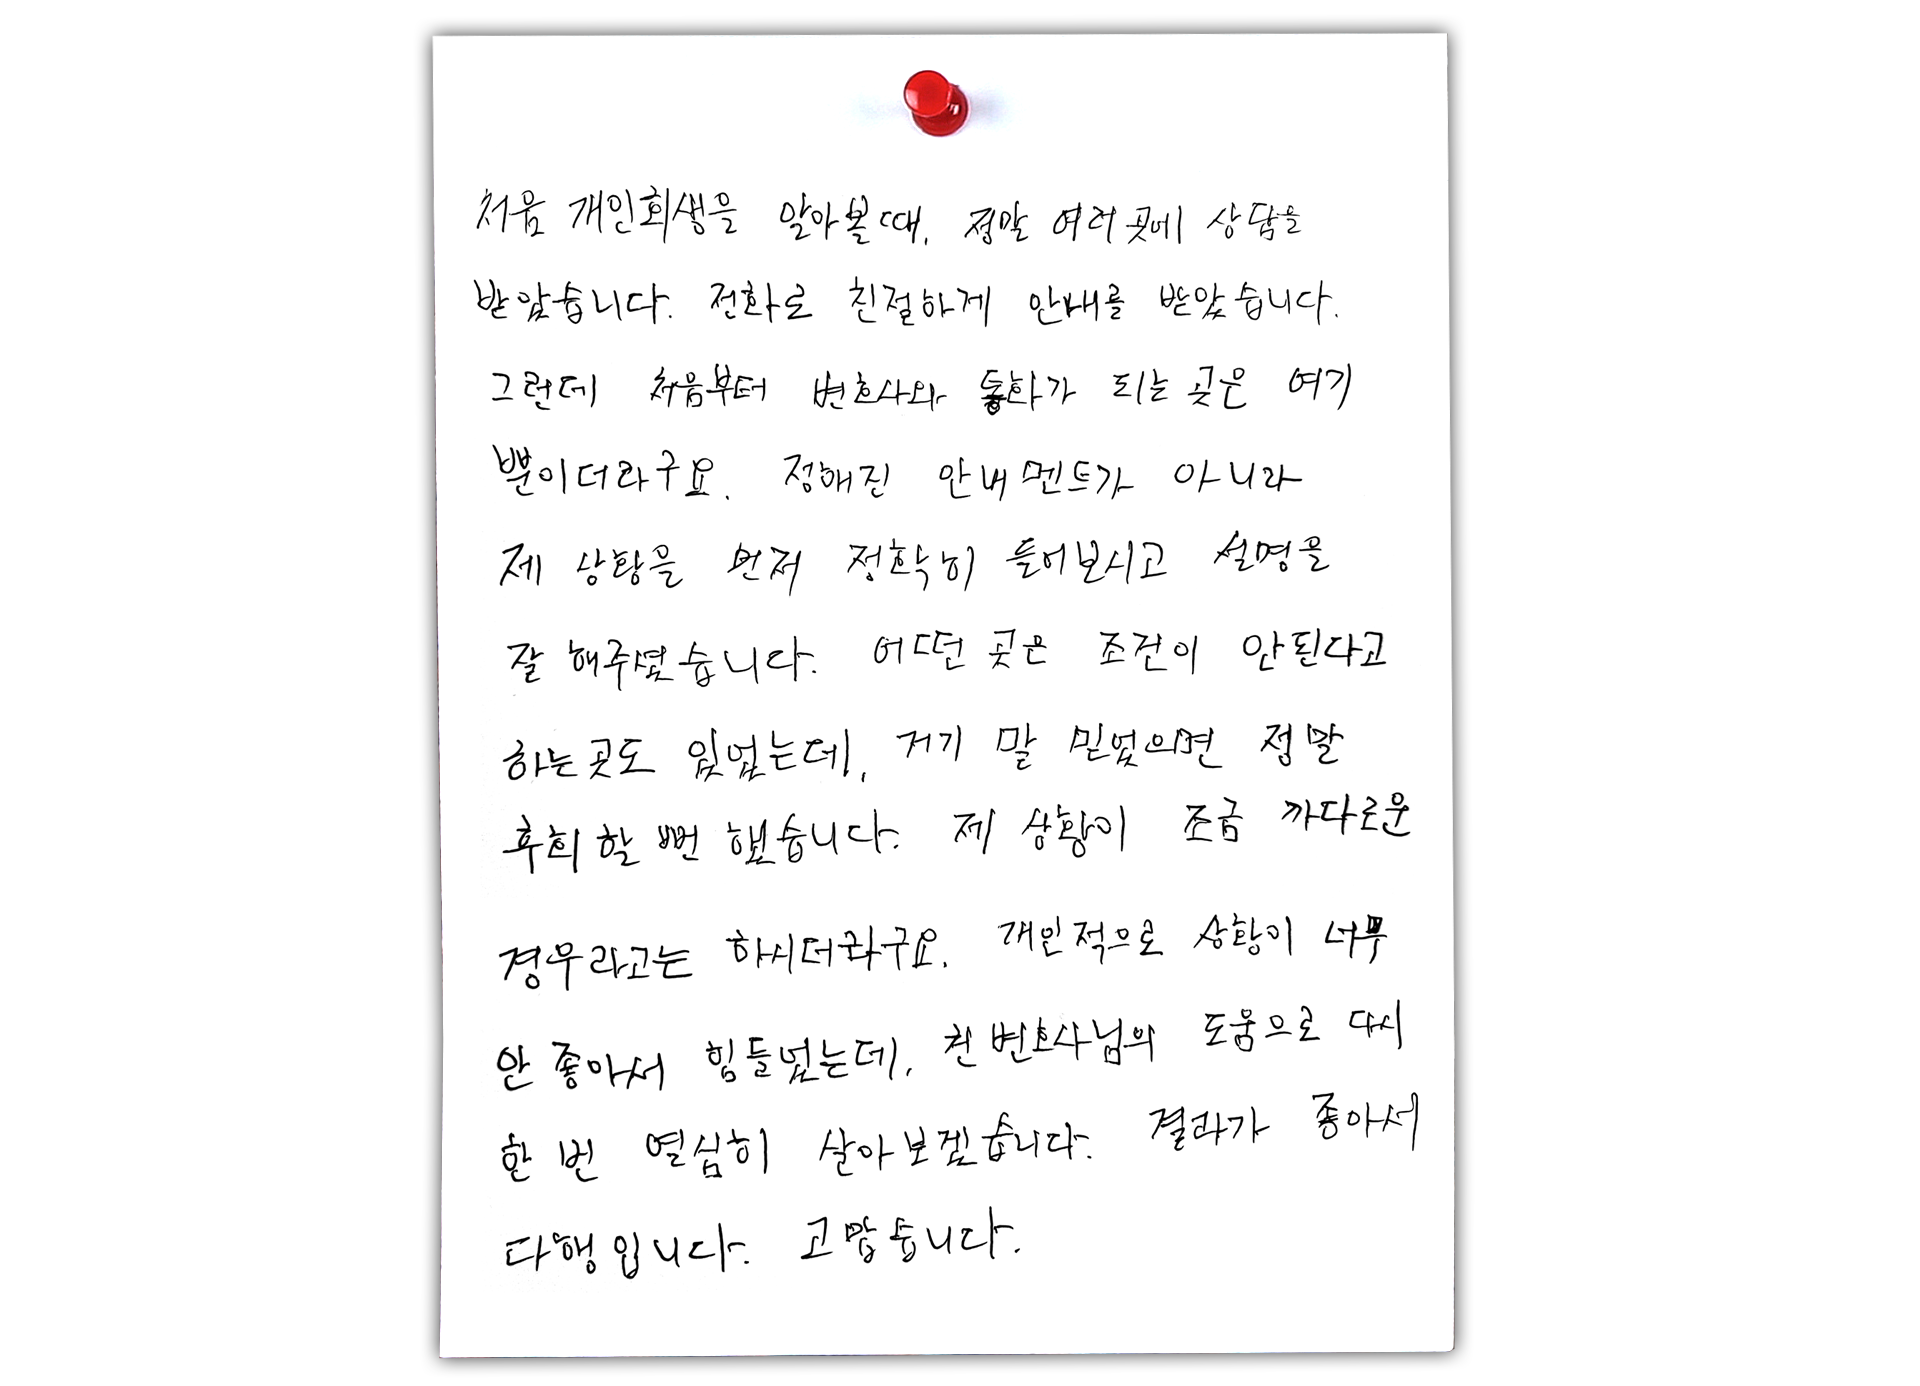 처음 개인회생을 알아볼때, 정말 여러곳에 상담을
받았습니다. 전화로 친절하게 안내를 받았습니다.
그런데 처음부터 변호사와 통화가 되는 곳은 여기
뿐이더라구요. 정해진 안내멘트가 아니라
제 상황을 먼저 정확히 들어보시고 설명을
잘 해주셨습니다. 어떤곳은 조건이 안된다고
하는곳도 있었는데, 거기 말 믿었으면 정말
후회할 뻔 했습니다. 제 상황이 조금 까다로운
경우라고는 하시더라구요. 개인적으로 상황이 너무
안 좋아서 힘들었는데, 천변호사님의 도움으로 다시
한 번 열심히 살아보겠습니다. 결과가 좋아서
다행입니다. 고맙습니다.